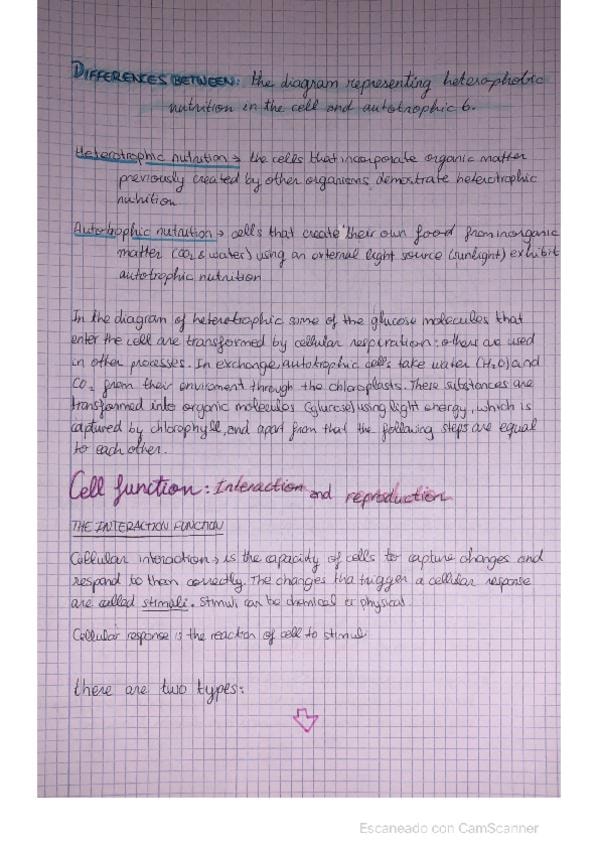 DIFFERENCES BETWEEN: the diagram representing heterophobic
nutrition in the cell and autotrophic 6.
Heterotrophic nutrition → the cells that incorporate organic matter
previously created by other organisms demostrate heterotrophic
nutrition
Autotrophic nutrition → cells that create their own food from inorganic
matter (CO2 & water) using an external light source (sunlight) exhibit
autotrophic nutrition
In the diagram of heterotrophic some of the glucose molecules that
enter the cell are transformed by cellular respiration; others are used
in other processes. In exchange, autotrophic cells take water (H2O) and
CO2 from their enviroment through the chloroplasts. These substances are
transformed into organic molecules (glucose) using light energy, which is
captured by chlorophyll, and apart from that the following steps are equal
to each other.
Cell function: Interaction and reproduction
THE INTERACTION FUNCTION
Cellular interaction → is the capacity of cells to capture changes and
respond to them correctly. The changes tha trigger a cellular response
are called stimuli. Stimuli can be chemical or physical.
Cellular response is the reaction of cell to stimuli
there are two types:
Escaneado con CamScanner